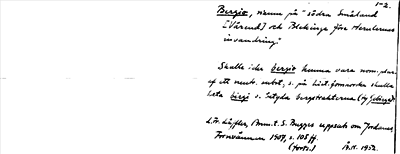 1-2.
Bergio, namn på "södra Småland
[Värend] och Blekinge före Herulernas
invandring."
Skulle icke bergio kunna vara nom. plur.
af ett neutr. subst., s. på häst. fornnorska skulle
heta birgi o. betyda bergstrakterna (ty Gebirge)?
L. Fr. Läffler, Anm. t. S. Bugges uppsats om Jordanes,
Fornvännen 1907, s. 105 ff.
(forts.) 1952.